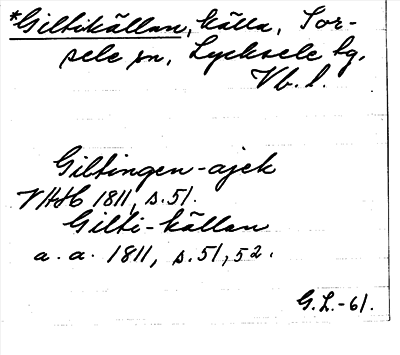 *Giltikällan, källa, Sor-
sele sn, Lycksele lg.
Vb. l.
Giltingen-ajek
VHAH 1811, s. 51.
Gilti-källan
a. a. 1811, s. 51, 52.
G.L.-61.